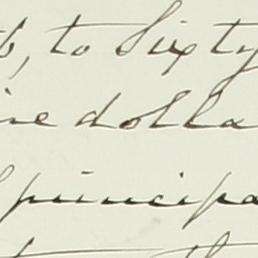 to Sixty
dolla
principa